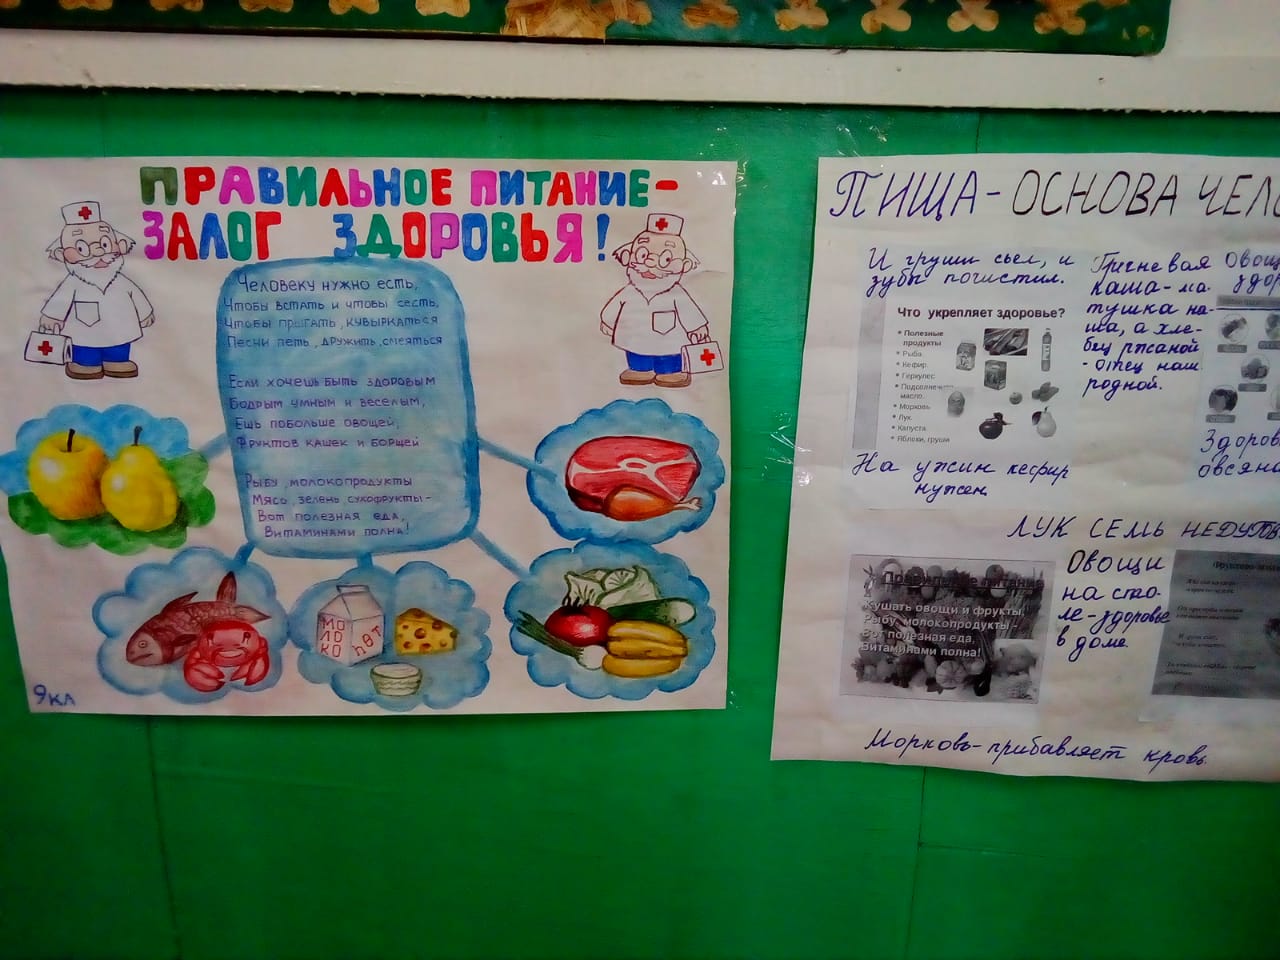 ПРАВИЛЬНОЕ ПИТАНИЕ-
ЗАЛОГ ЗДОРОВЬЯ!
Человеку нужно есть,
Чтобы встать и чтобы сесть,
Чтобы прыгать, кувыркаться
Песни петь, дружить, смеяться
Если хочешь быть здоровым
Бодрым умным и веселым,
Ешь побольше овощей,
Фруктов кашек и борщей
Рыбу, молокопродукты
Мясо, зелень, сухофрукты-
Вот полезная еда,
Витаминами полна!
МО
ЛО
КО
9КА
ПИЩА-ОСНОВА
И груши съел, и
зубы почистил.
Что укрепляет здоровье?
Полезные
продукты
Рыба
Кефир
Геркулес
Подсолнечн
масло.
Морковь
Лук.
Капуста
Яблоки, груши
На ужин кефир
нужен
Гречневая
каша-ма-
тушка на-
ша, а хле-
бец ржаной
-отец наш
родной.
ЛУК СЕМЬ
Правильное питание
Кушать овощи и фрукты,
Рыбу, молокопродукты -
Вот полезная еда,
Витаминами полна!
Овощи
на сто-
ле-здоровье
в доме.
Морковь-прибавляет кровь.